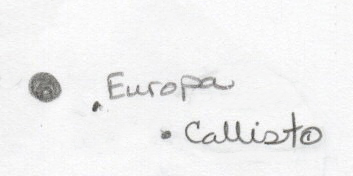 Europa
Callisto